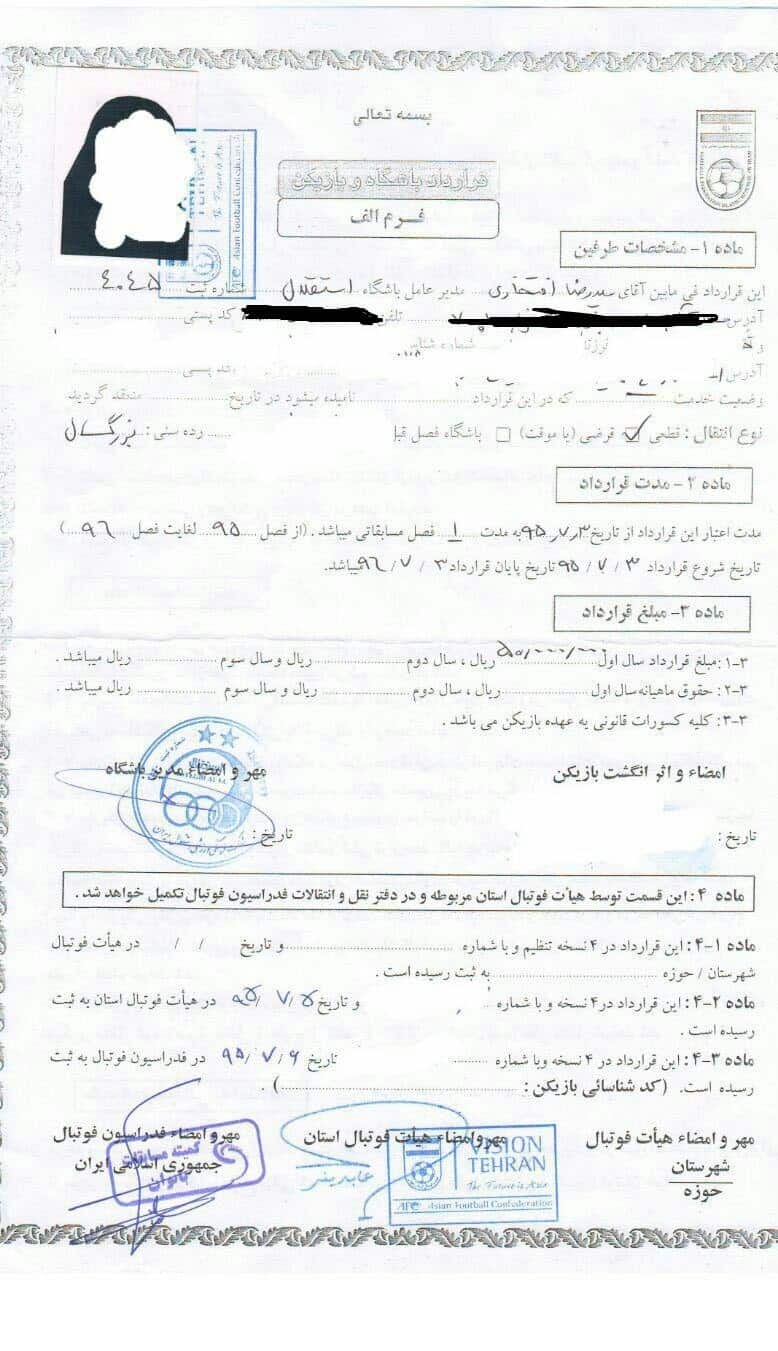 بسمه تعالی
قرارداد باشگاه و بازیکن
فرم الف
ماده ۱- مشخصات طرفین
این قرارداد فی مابین آقای سیدرضا افتخاری مدیر عامل باشگاه استقلال شماره ثبت ۴۰۴۵
آدرس تلفن کد پستی
شماره
آدرس پستی
وضعیت خدمت که در این قرارداد نامیده میشود در تاریخ منعقد گردید
نوع انتقال : قطعی ✓ قرضی (یا موقت) □ باشگاه فصل قبل رده سنی : بزرگسال
ماده ۲- مدت قرارداد
مدت اعتبار این قرارداد از تاریخ ۹۵/۷/۳ به مدت ۱ فصل مسابقاتی میباشد . (از فصل ۹۵ لغایت فصل ۹۶)
تاریخ شروع قرارداد ۳ / ۷ / ۹۵ تاریخ پایان قرارداد ۳ / ۷ / ۹۶ میباشد.
ماده ۳- مبلغ قرارداد
۳-۱: مبلغ قرارداد سال اول ۵۰/۰۰۰/۰۰۰ ریال ، سال دوم ریال و سال سوم ریال میباشد .
۳-۲: حقوق ماهیانه سال اول ریال ، سال دوم ریال و سال سوم ریال میباشد .
۳-۳: کلیه کسورات قانونی به عهده بازیکن می باشد .
امضاء و اثر انگشت بازیکن مهر و امضاء مدیر باشگاه
تاریخ : تاریخ :
ماده ۴ : این قسمت توسط هیأت فوتبال استان مربوطه و در دفتر نقل و انتقالات فدراسیون فوتبال تکمیل خواهد شد .
ماده ۱-۴: این قرارداد در ۴ نسخه تنظیم و با شماره و تاریخ / / در هیأت فوتبال
شهرستان / حوزه به ثبت رسیده است .
ماده ۲-۴ : این قرارداد در ۴ نسخه و با شماره و تاریخ ۹۵/۷/۵ در هیأت فوتبال استان به ثبت
رسیده است .
ماده ۳-۴ : این قرارداد در ۴ نسخه وبا شماره تاریخ ۹۵/۷/۶ در فدراسیون فوتبال به ثبت
رسیده است. (کد شناسائی بازیکن : ) .
مهر و امضاء هیأت فوتبال مهر و امضاء هیأت فوتبال استان مهر و امضاء فدراسیون فوتبال
شهرستان جمهوری اسلامی ایران
حوزه
کمیته مسابقات
بانوان
VISION
TEHRAN
The Future is Asia
AFC Asian Football Confederation